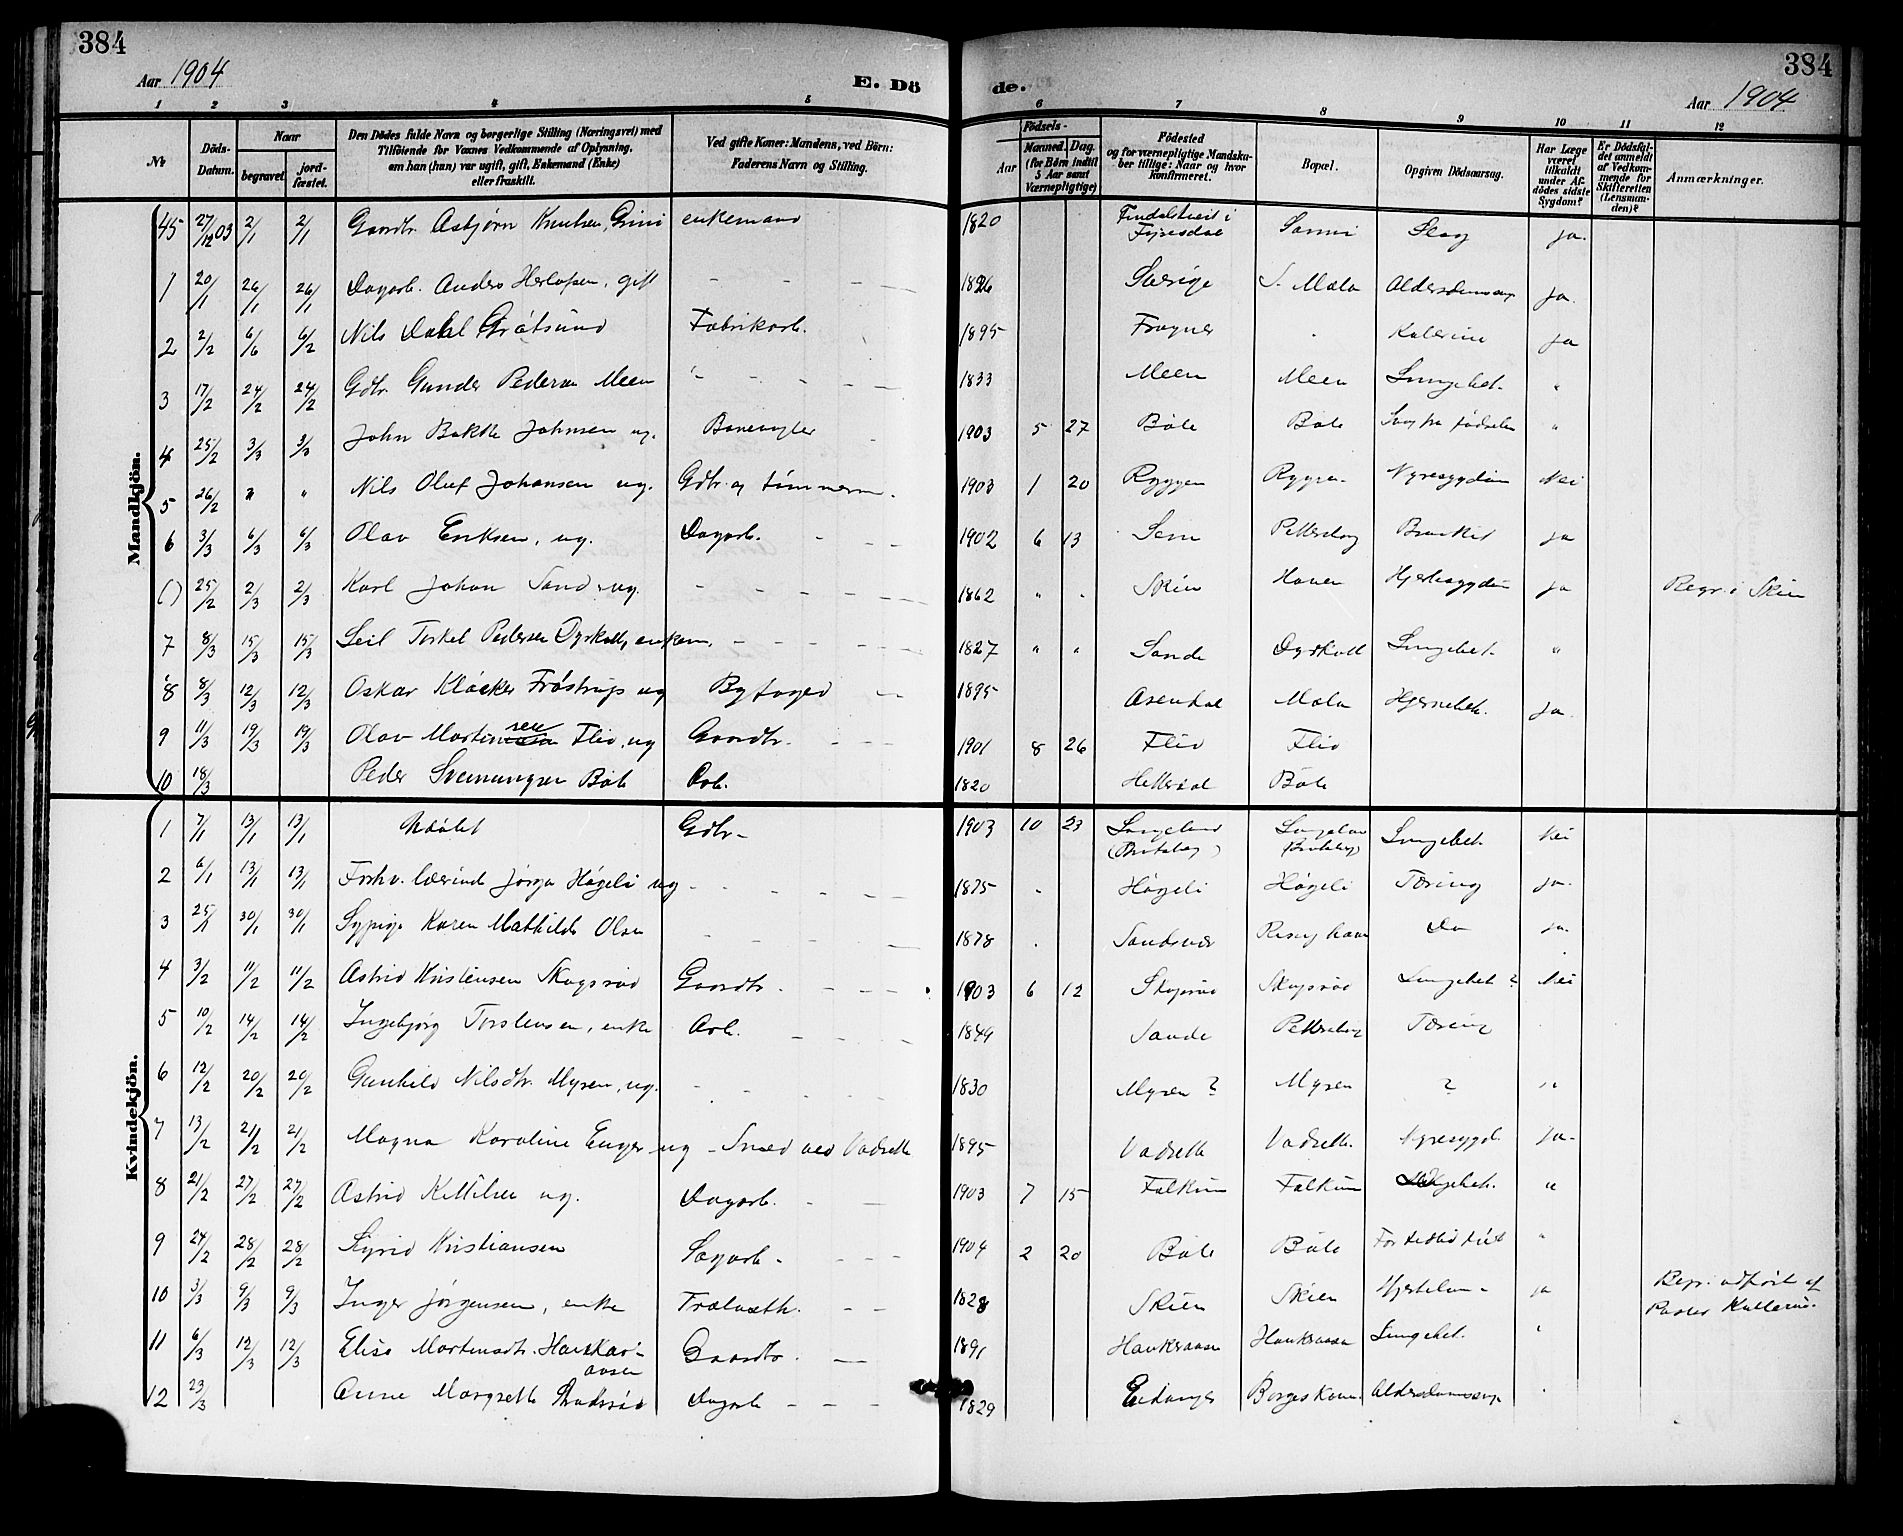 384
Aar 1904
E. Dö
de.
384
Aar 1904
1 2 3 4 5 6 7 8 9 10 11 12
No
Döds-Datum.
Naar
begravet.
jord-fæstet.
Den Dödes fulde Navn og borgerlige Stilling (Næringsvei) med
Tilföiende for Voxnes Vedkommende af Oplysning,
om han (hun) var ugift, gift, Enkemand (Enke)
eller fraskilt.
Ved gifte Koner: Mandens, ved Börn:
Faderens Navn og Stilling.
Födsels-
Aar
Maaned. Dag.
(for Börn indtil
5 Aar samt
Værnepligtige)
Födested
og for værnepligtige Mandska-
ber tillige: Naar og hvor
konfirmeret.
Bopæl.
Opgiven Dödsaarsag.
Har Læge
været
tilkaldt
under Af-
dödes sidste
Sygdom?
Er Dödsfal-
det anmeldt
af Vedkom-
mende for
Skifteretten
(Lensman-
den)?
Anmærkninger.
Mandkjön.
45 27/12 03 2/1 2/1 Gaardbr. Asbjørn Knutsen, Grini enkemand 1820 Findalstveit i Fyresdal Slag ja.
1 20/1 26/1 26/1 Dagarb. Anders Herlofsen, gift 1826 Sverige S. Mæla Alderdomssvag Ja.
2 2/2 6/6 6/2 Nils Dahl Gråtsund Fabrikarb. 1895 Frogner Ja
3 17/2 24/2 24/2 Gdbr. Gunder Pedersen Meen 1833 Meen Meen Lungebet. "
4 25/2 3/3 3/3 John Bakke Johnsen ug. Banevogter 1903 5 27 Bøle Bøle Svag fra fødselen "
5 26/2 " " Nils Oluf Johansen ug. Gdbr. og tømmerm. 1903 1 20 Ryggen Ryggen Nyresygdom Nei
6 3/3 6/3 6/3 Olav Eriksen, ug. Dagarb. 1902 6 13 Sem Bronkit ja
() 25/2 2/3 2/3 Karl Johan Sand ug. 1862 " " Skien Hauen Hjertesygdom ja Begr. i Skien
7 8/3 15/3 15/3 Torkel Pedersen Dyrkoll, enkem. 1827 " " Sande Dyrkoll Lungebet. "
8 8/3 12/3 12/3 Oskar Kløcker Frøstrup ug Byfoged 1895 Arendal Mæla Hjernebet. Ja.
9 11/3 19/3 19/3 Olav Martinsen Flid, ug Gaardbr. 1901 8 26 Flid Flid
10 18/3 Peder Svenungsen Bøle Arb. 1820 Hitterdal Bøle
Kvindekjön.
1 7/1 13/1 13/1 Udøbt Gdbr. 1903 10 23 Langeland Lungebet. Nei
2 6/1 13/1 13/1 Forhv. lærerinde Høgeli ug 1875 Høgeli Høgeli Tæring ja.
3 25/1 30/1 30/1 Sypige Karen Mathilde Olsen 1878 Sandsvær Do ja.
4 3/2 11/2 11/2 Astrid Kristensen Skogsrød Gaardbr. 1903 6 12 Skogsrød Skogsrød Lungebet? Nei
5 10/2 14/2 14/2 Ingebjørg Torstensen, enke Arb. 1849 Sande Tæring
6 12/2 20/2 20/2 Gunhild Nilsdtr. Myren, ug. 1830 Myren? Myren ? "
7 13/2 21/2 21/2 Magna Karoline Enger ug Smed ved Vadrette 1895 Vadrette Vadrette. Nyresygd. Ja-
8 21/2 27/2 27/2 Astrid Kittilsen ug. Dagarb. 1903 7 15 Falkum Falkum "
9 24/2 28/2 28/2 Sigrid Kristiansen Sagarb. 1904 2 20 Bøle Bøle For tidlig født "
10 3/3 9/3 9/3 Inger Jørgensen, enke 1828 Skien Skien ja Begr. udført af
Pastor
11 6/3 12/3 12/3 Elise Martensdtr. Haukar-
aasen Gaardbr. 1891 Haukraasen Haukraasen Lungebet.
12 23/3 Anne Margrethe Dagarb 1829 Eidanger Alderdomssvag